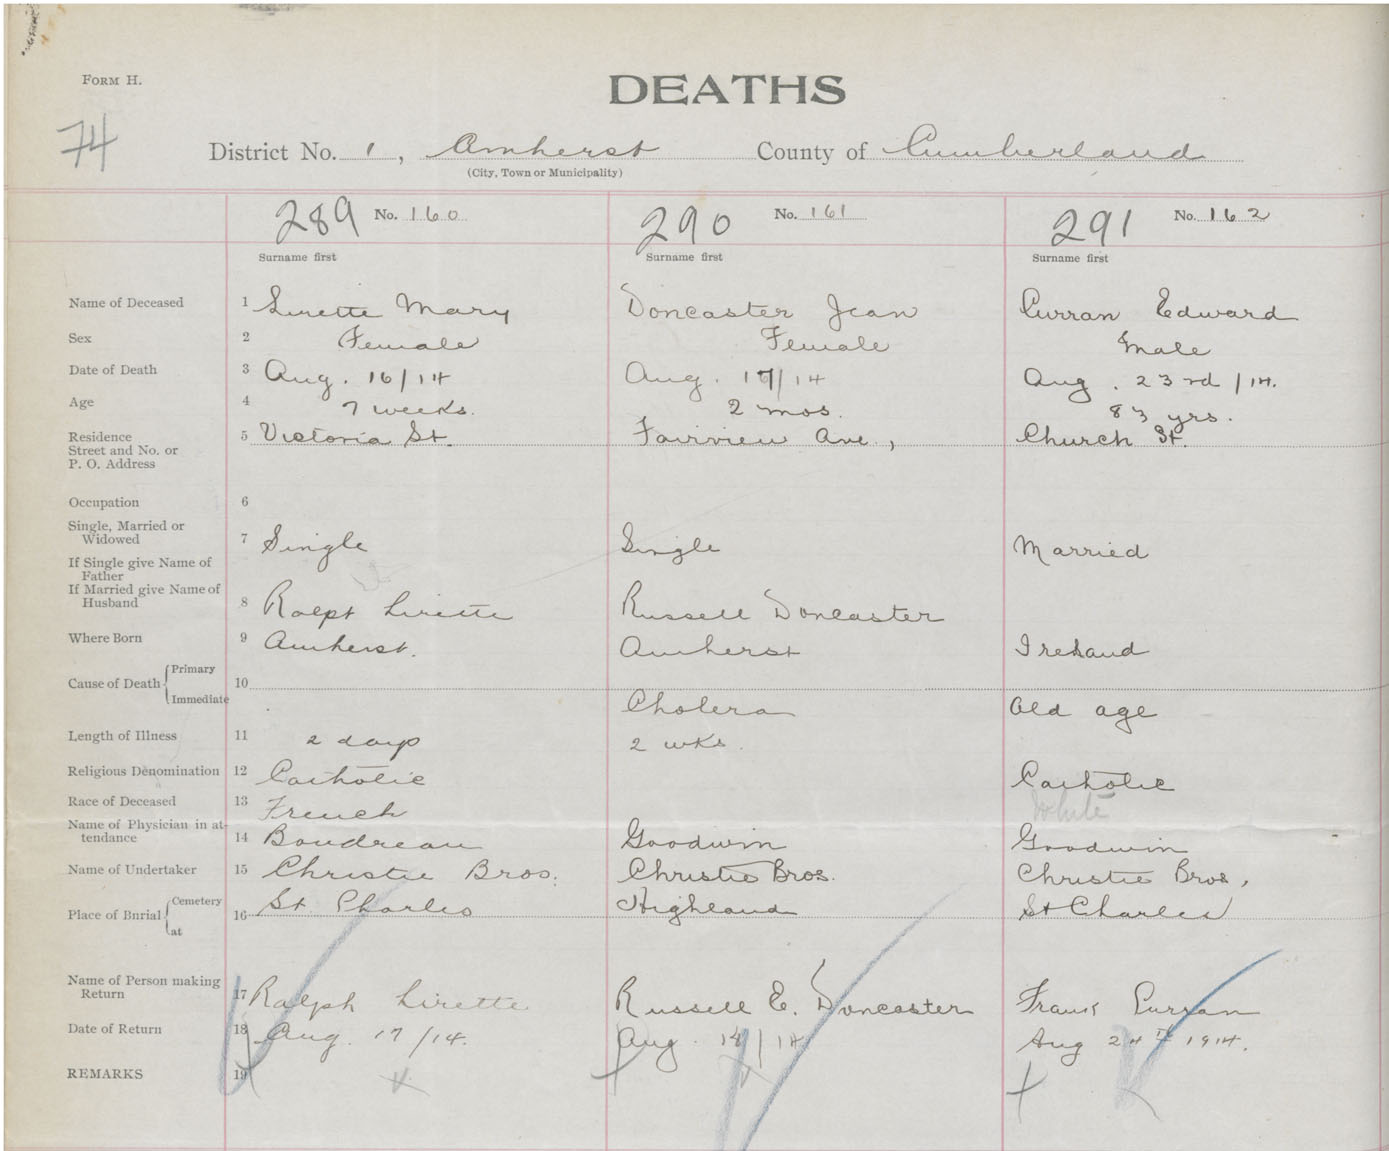 FORM H.
DEATHS
74
District No. 1, Amherst County of Cumberland
(City, Town or Municipality)
289 No. 160 290 No. 161 291 No. 162
Surname first Surname first Surname first
Name of Deceased 1 Lirette Mary Doncaster Jean Curran Edward
Sex 2 Female Female Male
Date of Death 3 Aug. 16/14 Aug. 17/14 Aug. 23rd/14.
Age 4 7 weeks. 2 mos. 83 yrs.
Residence 5 Victoria St. Fairview Ave., Church St.
Street and No. or
P. O. Address
Occupation 6
Single, Married or
Widowed 7 Single Single Married
If Single give Name of
Father
If Married give Name of
Husband 8 Ralph Lirette Russell Doncaster
Where Born 9 Amherst. Amherst Ireland
Cause of Death 10 Primary
Immediate Cholera Old age
Length of Illness 11 2 days 2 wks.
Religious Denomination 12 Catholic Catholic
Race of Deceased 13 French White
Name of Physician in at-
tendance 14 Boudreau Goodwin Goodwin
Name of Undertaker 15 Christie Bros. Christie Bros. Christie Bros,
Place of Burial 16 Cemetery St. Charles Highland St Charles
at
Name of Person making
Return 17 Ralph Lirette Russell E. Doncaster Frank Curran
Date of Return 18 Aug. 17/14. Aug. 18/14 Aug 24th 1914.
REMARKS 19